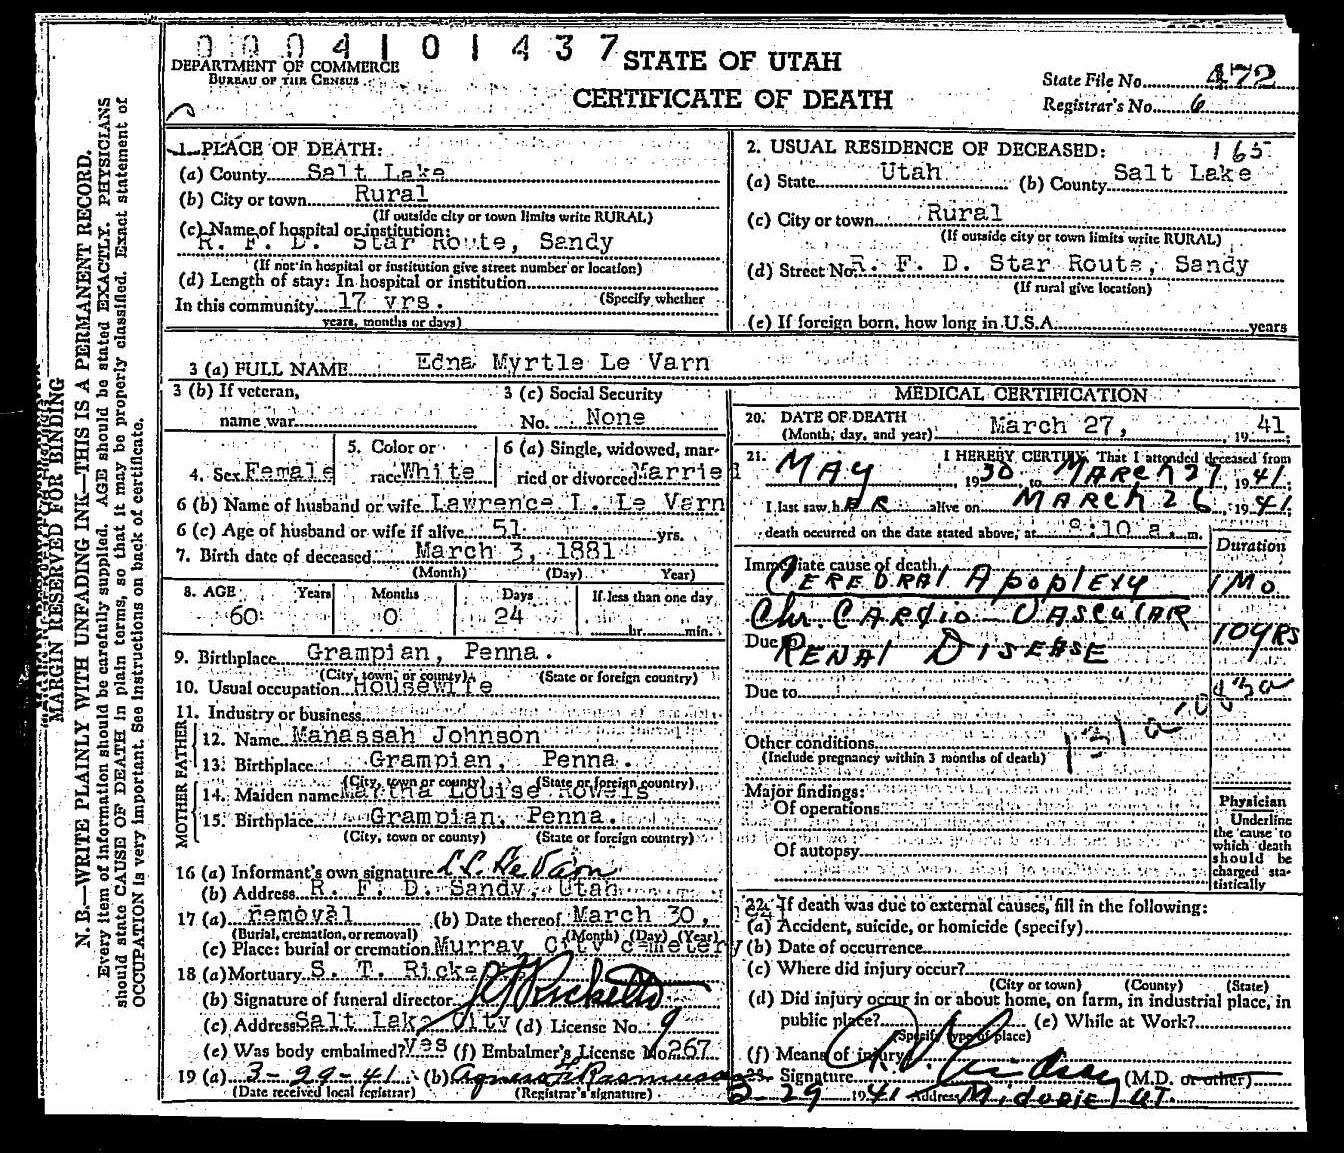 0004101437
STATE OF UTAH
DEPARTMENT OF COMMERCE
BUREAU OF THE CENSUS
CERTIFICATE OF DEATH
State File No. 472
Registrar's No. 6
MARGIN RESERVED FOR BINDING
N. B.—WRITE PLAINLY WITH UNFADING INK—THIS IS A PERMANENT RECORD.
Every item of information should be carefully supplied. AGE should be stated EXACTLY. PHYSICIANS
should state CAUSE OF DEATH in plain terms, so that it may be properly classified. Exact statement of
OCCUPATION is very important. See instructions on back of certificate.
1. PLACE OF DEATH:
(a) County Salt Lake
(b) City or town Rural
(If outside city or town limits write RURAL)
(c) Name of hospital or institution:
R. F. D. Star Route, Sandy
(If not in hospital or institution give street number or location)
(d) Length of stay: In hospital or institution
(Specify whether
In this community 17 yrs.
years, months or days)
2. USUAL RESIDENCE OF DECEASED: 165
(a) State Utah (b) County Salt Lake
(c) City or town Rural
(If outside city or town limits write RURAL)
(d) Street No. R. F. D. Star Route, Sandy
(If rural give location)
(e) If foreign born, how long in U.S.A. years
3 (a) FULL NAME Edna Myrtle Le Varn
3 (b) If veteran,
name war
3 (c) Social Security
No. None
4. Sex Female
5. Color or
race White
6 (a) Single, widowed, mar-
ried or divorced Married
6 (b) Name of husband or wife Lawrence L. Le Varn
6 (c) Age of husband or wife if alive 51 yrs.
7. Birth date of deceased March 3, 1881
(Month) (Day) Year)
8. AGE Years Months Days If less than one day
60 0 24 hr. min.
9. Birthplace Grampian, Penna.
(City, town, or county) (State or foreign country)
10. Usual occupation Housewife
11. Industry or business
FATHER
12. Name Manassah Johnson
13. Birthplace Grampian, Penna.
(City, town or county) (State or foreign country)
MOTHER
14. Maiden name Martha Louise Rowels
15. Birthplace Grampian, Penna.
(City, town or county) (State or foreign country)
16 (a) Informant's own signature L.L. Le Varn
(b) Address R. F. D. Sandy, Utah
17 (a) removal (b) Date thereof March 30, 1941
(Burial, cremation, or removal) (Month) (Day) (Year)
(c) Place: burial or cremation Murray City cemetery
18 (a) Mortuary S. T. Ricke
(b) Signature of funeral director Ricketts
(c) Address Salt Lake City (d) License No. 9
(e) Was body embalmed? yes (f) Embalmer's License No. 267
19 (a) 3-29-41 (b) Agnes H Rasmussen
(Date received local registrar) (Registrar's signature)
MEDICAL CERTIFICATION
20. DATE OF DEATH
(Month, day, and year) March 27, 1941
21. I HEREBY CERTIFY, That I attended deceased from
MAY, 1930 to MARCH 27, 1941
I last saw her alive on MARCH 26, 1941
death occurred on the date stated above, at 8:10 a. m.
Duration
Immediate cause of death
CEREBRAL APOPLEXY 1 MO
Chr. CARDIO-VASCULAR
Due to RENAL DISEASE 10 YRS
Due to
131a
Other conditions
(Include pregnancy within 3 months of death)
Major findings:
Of operations
Of autopsy
Physician
Underline
the cause to
which death
should be
charged sta-
tistically
22. If death was due to external causes, fill in the following:
(a) Accident, suicide, or homicide (specify)
(b) Date of occurrence
(c) Where did injury occur?
(City or town) (County) (State)
(d) Did injury occur in or about home, on farm, in industrial place, in
public place? (e) While at Work?
(Specify type of place)
(f) Means of injury
23. Signature (M.D. or other)
29 1941 Address Midvale UT.